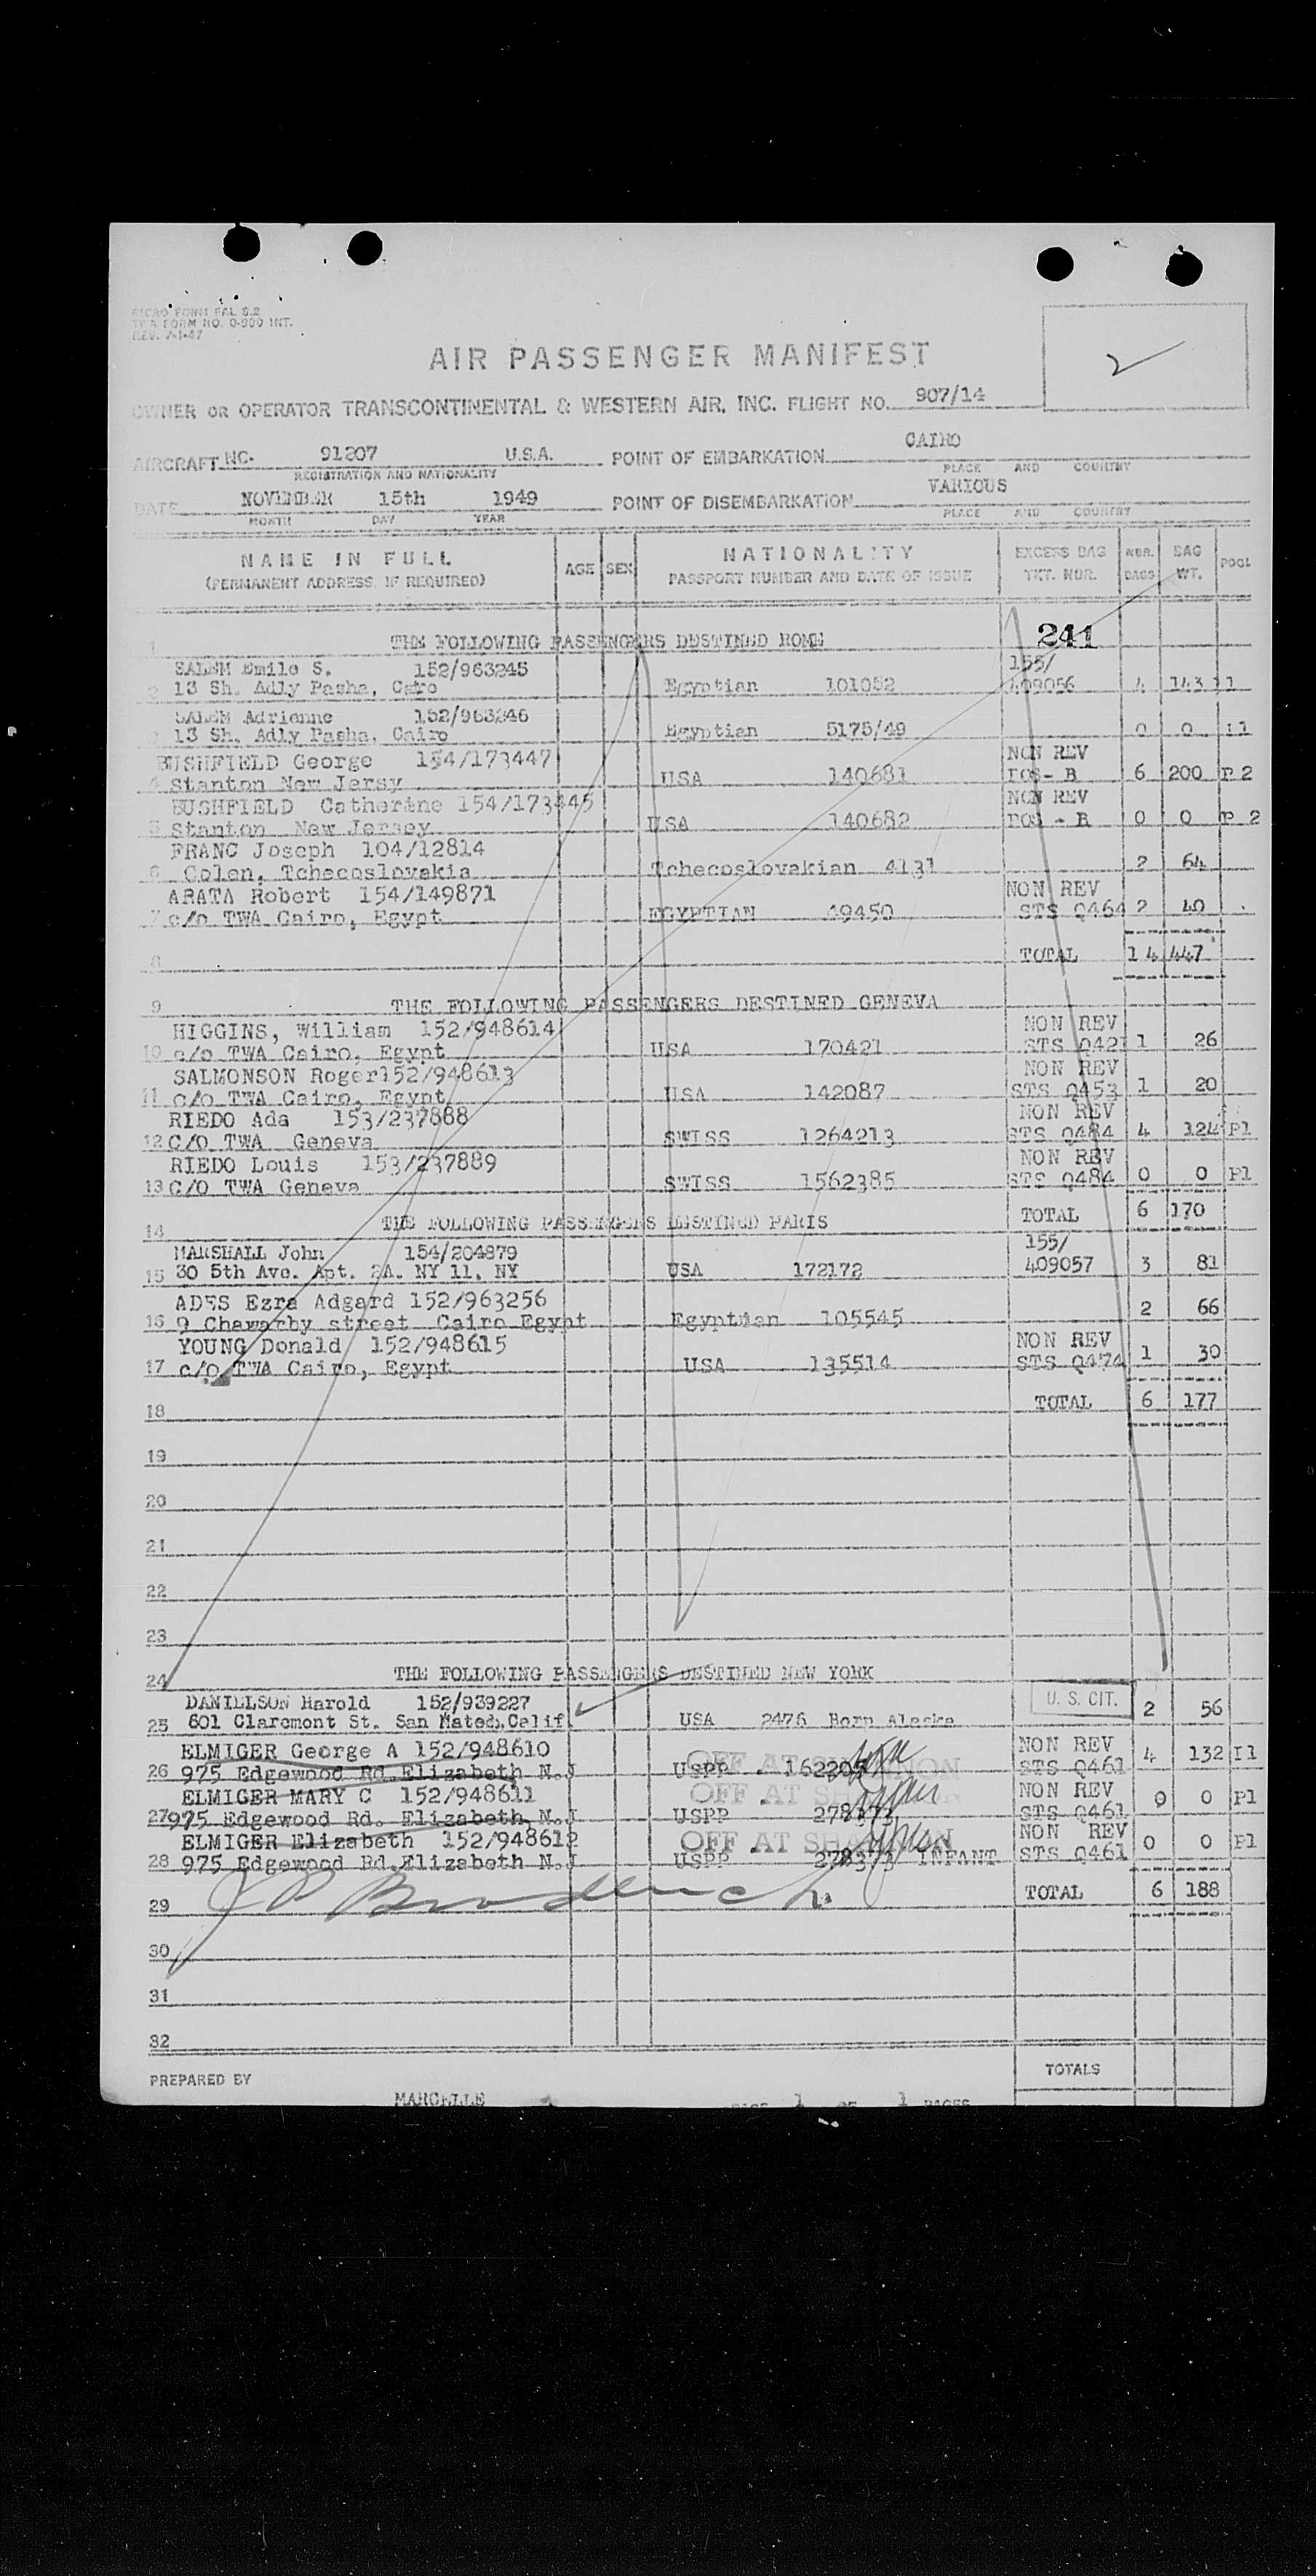 PICAO FORM PAL S.2
TWA FORM NO. O-900 INT.
REV. 7-1-47
AIR PASSENGER MANIFEST
OWNER OR OPERATOR TRANSCONTINENTAL & WESTERN AIR, INC. FLIGHT NO. 907/14
AIRCRAFT NC. 91207 U.S.A. POINT OF EMBARKATION CAIRO
REGISTRATION AND NATIONALITY PLACE AND COUNTRY
DATE NOVEMBER 15th 1949 POINT OF DISEMBARKATION VARIOUS
MONTH DAY YEAR PLACE AND COUNTRY
NAME IN FULL AGE SEX NATIONALITY EXCESS BAG NBR. BAG POOL
(PERMANENT ADDRESS, IF REQUIRED) PASSPORT NUMBER AND DATE OF ISSUE TKT. NBR. BAGS WT.
1 THE FOLLOWING PASSENGERS DESTINED ROME 241
SALEM Emile S. 152/963245 155/
2 13 Sh. Adly Pasha, Cairo Egyptian 101052 409056 4 143
SALEM Adrienne 152/963246
3 13 Sh. Adly Pasha, Cairo Egyptian 5175/49 0 0
BUSHFIELD George 154/173447 NON REV
4 Stanton New Jersy USA 140681 POS- B 6 200 P 2
BUSHFIELD Catherine 154/173445 NON REV
5 Stanton New Jersey USA 140682 POS - B 0 0 P 2
FRANC Joseph 104/12814
6 Colen, Tchecoslovakia Tchecoslovakian 4131 2 64
ARATA Robert 154/149871 NON REV
7 c/o TWA Cairo, Egypt EGYPTIAN 49450 STS Q464 2 40
8 TOTAL 14 447
9 THE FOLLOWING PASSENGERS DESTINED GENEVA
HIGGINS, William 152/948614 NON REV
10 c/o TWA Cairo, Egypt USA 170421 STS Q421 1 26
SALMONSON Roger152/948613 NON REV
11 c/o TWA Cairo, Egypt USA 142087 STS Q453 1 20
RIEDO Ada 153/237888 NON REV
12 C/O TWA Geneva SWISS 1264213 STS Q484 4 124 P1
RIEDO Louis 153/237889 NON REV
13 C/O TWA Geneva SWISS 1562385 STS Q484 0 0 P1
14 THE FOLLOWING PASSENGERS DESTINED PARIS TOTAL 6 170
MARSHALL John 154/204879 155/
15 30 5th Ave. Apt. 2A. NY 11, NY USA 172172 409057 3 81
ADES Ezra Adgard 152/963256
16 9 Chawarby street Cairo Egypt Egyptian 105545 2 66
YOUNG Donald 152/948615 NON REV
17 c/o TWA Cairo, Egypt USA 135514 STS Q474 1 30
18 TOTAL 6 177
19
20
21
22
23
24 THE FOLLOWING PASSENGERS DESTINED NEW YORK
DANIELSON Harold 152/939227 U. S. CIT.
25 601 Claremont St. San Mateo, Calif. USA 2476 Born Alaska 2 56
ELMIGER George A 152/948610 OFF AT SHANNON NON REV
26 975 Edgewood Rd Elizabeth N.J USPP 162205 STS Q461 4 132 P1
ELMIGER MARY C 152/948611 OFF AT SHANNON NON REV
27 975 Edgewood Rd. Elizabeth N.J USPP 278373 STS Q461 0 0 P1
ELMIGER Elizabeth 152/948612 OFF AT SHANNON NON REV
28 975 Edgewood Rd. Elizabeth N.J USPP 278373 INFANT STS Q461 0 0 P1
29 TOTAL 6 188
30
31
32
PREPARED BY TOTALS
MARCELLE PAGE 1 OF 1 PAGES